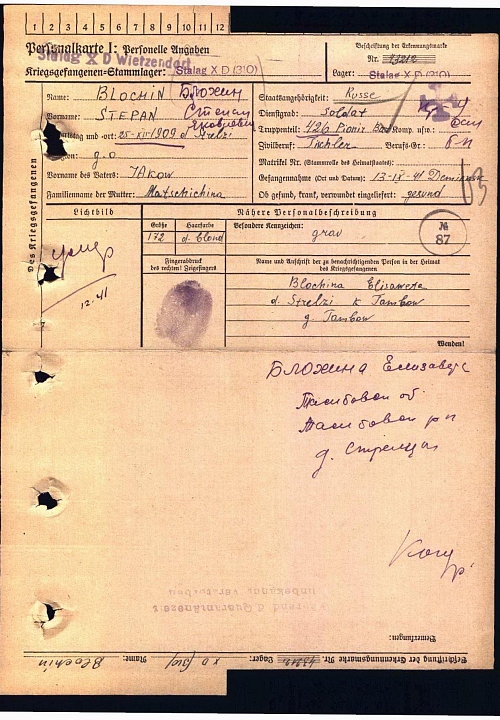 1 2 3 4 5 6 7 8 9 10 11 12
Personalkarte I: Personelle Angaben
Stalag X D Wietzendorf
Kriegsgefangenen-Stammlager: Stalag X D (310)
Beschriftung der Erkennungsmarke
Nr. 13212
Lager: Stalag X D (310)
Des Kriegsgefangenen
Name: BLOCHIN Блохин
Vorname: STEPAN Степан
Яковлевич
Geburtstag und -ort: 25-XII 1909 d. Strelzi
Religion: g.o
Vorname des Vaters: JAkow
Familienname der Mutter: Matschichina
Staatsangehörigkeit: Russe
Dienstgrad: Soldat
Truppenteil: 426 Pionir Bat Komp. usw.:
Zivilberuf: Tischler Berufs-Gr.: 6-H
Matrikel Nr. (Stammrolle des Heimatstaates):
Gefangennahme (Ort und Datum): 13-IX-41
Ob gesund, krank, verwundet eingeliefert: gesund
Lichtbild
Nähere Personalbeschreibung
Größe Haarfarbe Besondere Kennzeichen:
172 d. blond grav
№
87
умер
12.41
Fingerabdruck
des rechten! Zeigefingers
Name und Anschrift der zu benachrichtigenden Person in der Heimat
des Kriegsgefangenen
Blochina Elisaweta
d. Strelzi k Tambow
g. Tambow
Wenden!
Блохина Елизавета
Тамбовская об
Тамбовск р н
д. Стрельцы
während d Quarantänezeit
unbekannt verstorben
Bemerkungen:
Beschriftung der Erkennungsmarke Nr. 13212 Lager: X D (310) Name: Blochin